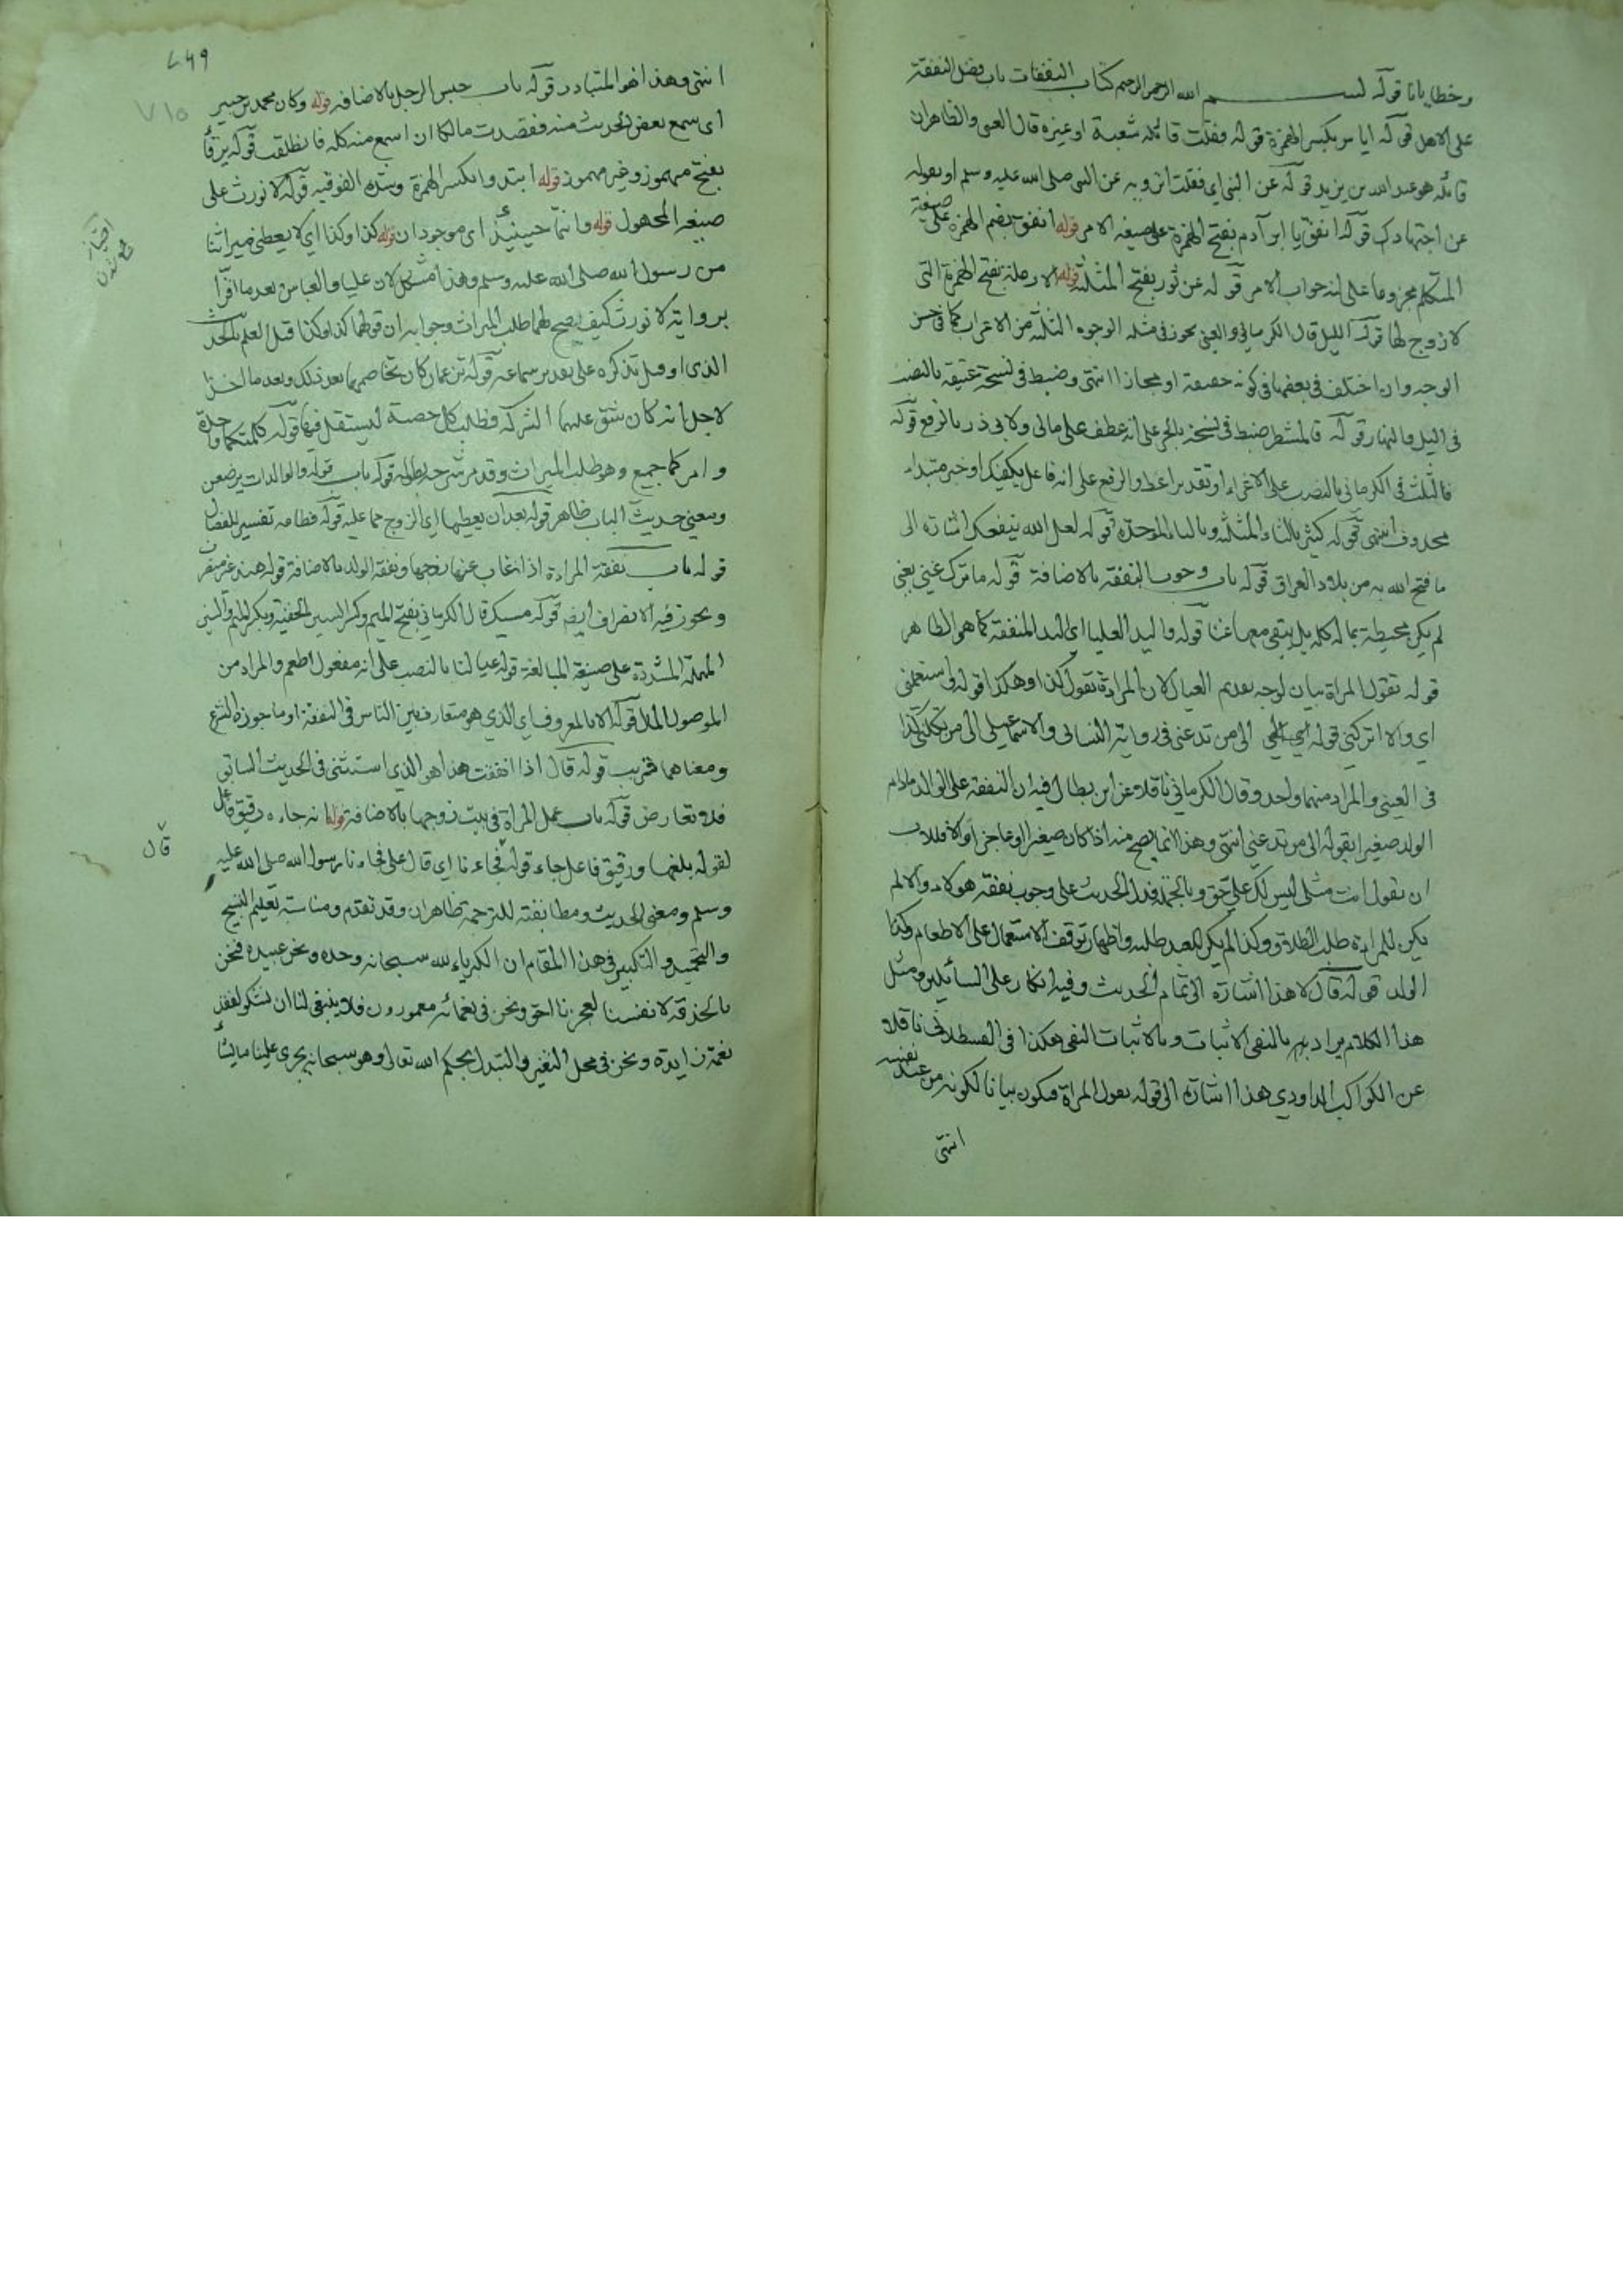 وخطايانا قوله بسم الله الرحمن الرحيم كتاب النفقات باب فضل النفقة
على الاهل قوله اياس بكسر الهمزة قوله فقلت قائله شعبة او غيره قال العيني والظاهر ان
قائله هو عبد الله بن يزيد قوله عن النبي اي فقلت اترويه عن النبي صلى الله عليه وسلم او تقوله
عن اجتهادك قوله انفق يا ابن آدم بفتح الهمزة على صيغة الامر قوله انفق بضم الهمزة على صيغة
المتكلم مجزوما على انه جواب الامر قوله عن ثور بفتح المثلثة قوله الارملة بفتح الهمزة التي
لا زوج لها قوله الليل قال الكرماني والعيني يجوز في مثله الوجوه الثلثة من الاعراب كما في حسن
الوجه وان اختلف في بعضها في كونه حقيقة او مجازا انتهى وضبط في نسخة عتيقة بالنصب
في الليل والنهار قوله فالشطر ضبط في نسخة بالجر على انه عطف على مالي ولابي ذر بالرفع قوله
فالثلث في الكرماني بالنصب على الاغراء او تقدير اعط والرفع على انه فاعل يكفيك او خبر مبتداء
محذوف انتهى قوله كثير بالثاء المثلثة وبالباء الموحدة قوله لعل الله ينفعك اشارة الى
ما فتح الله به من بلاد العراق قوله باب وجوب النفقة بالاضافة قوله ما ترك غنى يعني
لم يكن محيطة بماله كله بل يبقى معها غنا قوله واليد العليا اي اليد المنفقة كما هو الظاهر
قوله تقول المراة بيان لوجه تقديم العيال لان المرادة تقول كذا وهكذا قوله واستعملني
اي والا اتركني قوله الى من تدعني في رواية النسائي والاسماعيلي الى من تكلني كذا
في العيني والمراد منهما واحد وقال الكرماني ناقلا عن ابن بطال فيه ان النفقة على الوالد مادام
الولد صغيرا بقوله الى من تدعني انتهى وهذا انما يصح منه اذا كان صغيرا او عاجزا والا فللاب
ان يقول انت مثلي ليس لك علي حق وبالجملة فدل الحديث على وجوب نفقة هولاء والا لم
يكن للمراءة طلب الطلاق وكذا لم يكن للعبد طلبه واظهار توقف الاستعمال على الاطعام وكذا
الولد قوله قال لا هذا اشارة الى تمام الحديث وفيه انكار على السائلين ومثل
هذا الكلام يراد به بالنفي الاثبات وبالاثبات النفي هكذا في القسطلاني ناقلا
عن الكواكب الداودي هذا اشارة الى قوله تقول المراة فيكون بيانا لكونه من عند نفسه
انتهى
٧١٥
انتهى وهذا هو المتبادر قوله باب حبس الرجل بالاضافة قوله وكان محمد بن جبير
اي سمع بعض الحديث منه فقصدت مالكا ان اسمع منه كله فانطلقت قوله يرفأ
بفتح مهموز وغير مهموز قوله اتئدوا بكسر الهمزة وشدة الفوقية قوله لا نورث على
صيغة المجهول قوله وانتما حينئذ اي موجودان قوله كذا وكذا اي لا يعطي ميراثنا
من رسول الله صلى الله عليه وسلم وهذا مشكل لان عليا والعباس بعد ما اقرا
برواية لا نورث كيف يصح لهما طلب الميراث وجوابه ان قولهما كذا وكذا قبل العلم بالحديث
الذي او قبل تذكره على بعد من سماعه قوله تزعمان كان تخاصمهما بعد ذلك وبعد ما اخذا
لاجل انه كان شق عليهما الشركة فطلب كل حصة ليستقل فيها قوله كلمتكما واحدة
وامركما جميع وهو طلب الميراث وقد مر شرحه بطوله قوله باب قوله والوالدات يرضعن
ومعنى حديث الباب ظاهر قوله بعد ان يعطيها اي الزوج مما عليه قوله فطامه تفسير للفصال
قوله باب نفقة المراءة اذا غاب عنها زوجها ونفقة الولد بالاضافة قوله هند غير منصرف
ويجوز فيه الانصراف ايضا قوله مسيك قال الكرماني بفتح الميم وكسر السين الخفيفة وبكسر الميم والسين
المهملة المشددة على صيغة المبالغة قوله عيالنا بالنصب على انه مفعول اطعم والمراد من
الموصول المال قوله الا بالمعروف اي الذي هو متعارف بين الناس في النفقة او ما جوزه الشرع
ومعناهما قريب قوله قال اذا انفقت هذا هو الذي استثنى في الحديث السابق
فلا تعارض قوله باب عمل المراة في بيت زوجها بالاضافة قوله انه جاءه رقيق فاعل
لقوله بلغها ورقيق فاعل جاء قوله فجاءنا اي قال علي فجاءنا رسول الله صلى الله عليه
قال
وسلم ومعنى الحديث ومطابقته للترجمة ظاهران وقد تقدم ومناسبة تعليم التسبيح
والتحميد والتكبير في هذا المقام ان الكبرياء لله سبحانه وحده ونحن عبيده فنحن
بالخدمة لانفسنا لعجزنا احق ونحن في نعمائه مغمورون فلا ينبغي لنا ان نشكو لفقد
نعمة زايدة ونحن في محل التغير والتبدل بحكم الله تعالى وهو سبحانه يجري علينا ما يشأ